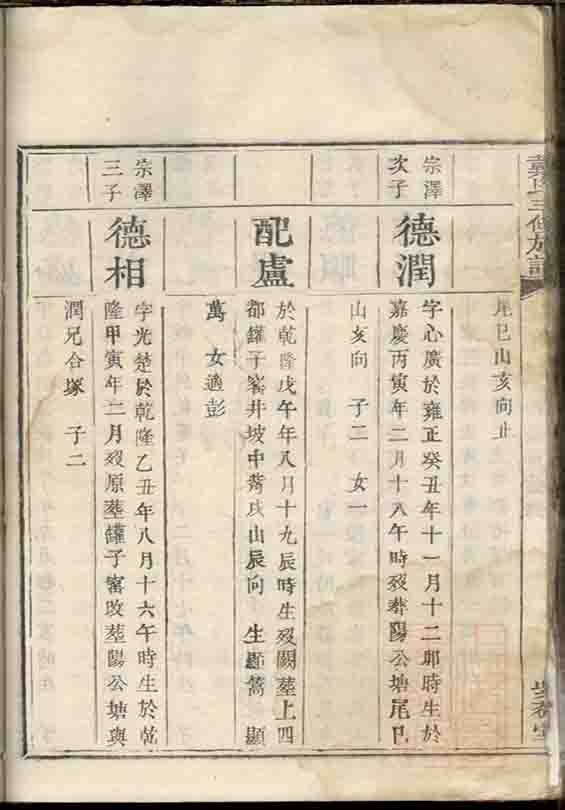 戴氏三修族譜
尾巳山亥向止
宗澤
次子
德潤
字心廣於雍正癸丑年十一月十二卯時生於
嘉慶丙寅年二月十八午時歿葬陽公塘尾巳
山亥向　子二　女一
配盧
於乾隆戊午年八月十九辰時生歿闕塟上四
都鑵子窰井坡中　戌山辰向　生　　顯
萬　女適彭
宗澤
三子
德相
字光楚於乾隆乙丑年八月十六午時生於乾
隆甲寅年二月歿原塟鑵子窰改塟陽公塘與
潤兄合塚　子二